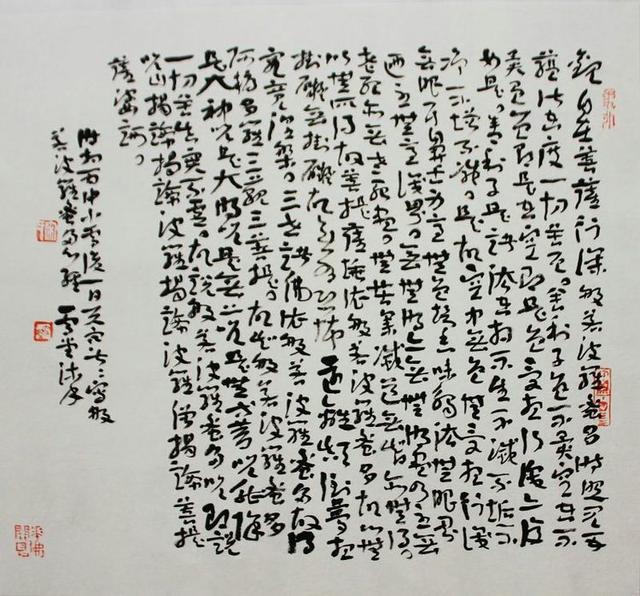 觀自在菩薩行深般若波羅蜜多時照見五
蘊皆空度一切苦厄舍利子色不異空空不
異色色即是空空即是色受想行識亦復
如是舍利子是諸法空相不生不滅不垢不
淨不增不減是故空中無色無受想行識
無眼耳鼻舌身意無色聲香味觸法無眼界
乃至無意識界無無明亦無無明盡乃至無
老死亦無老死盡無苦集滅道無智亦無得
以無所得故菩提薩埵依般若波羅蜜多故心無
掛礙無掛礙故無有恐怖遠離顛倒夢想
究竟涅槃三世諸佛依般若波羅蜜多故得
阿耨多羅三藐三菩提故知般若波羅蜜多
是大神咒是大明咒是無上咒是無等等咒能除
一切苦真實不虛故說般若波羅蜜多咒即說
咒曰揭諦揭諦波羅揭諦波羅僧揭諦菩提
薩婆訶
小雪後一日寫般
若波羅蜜多心經